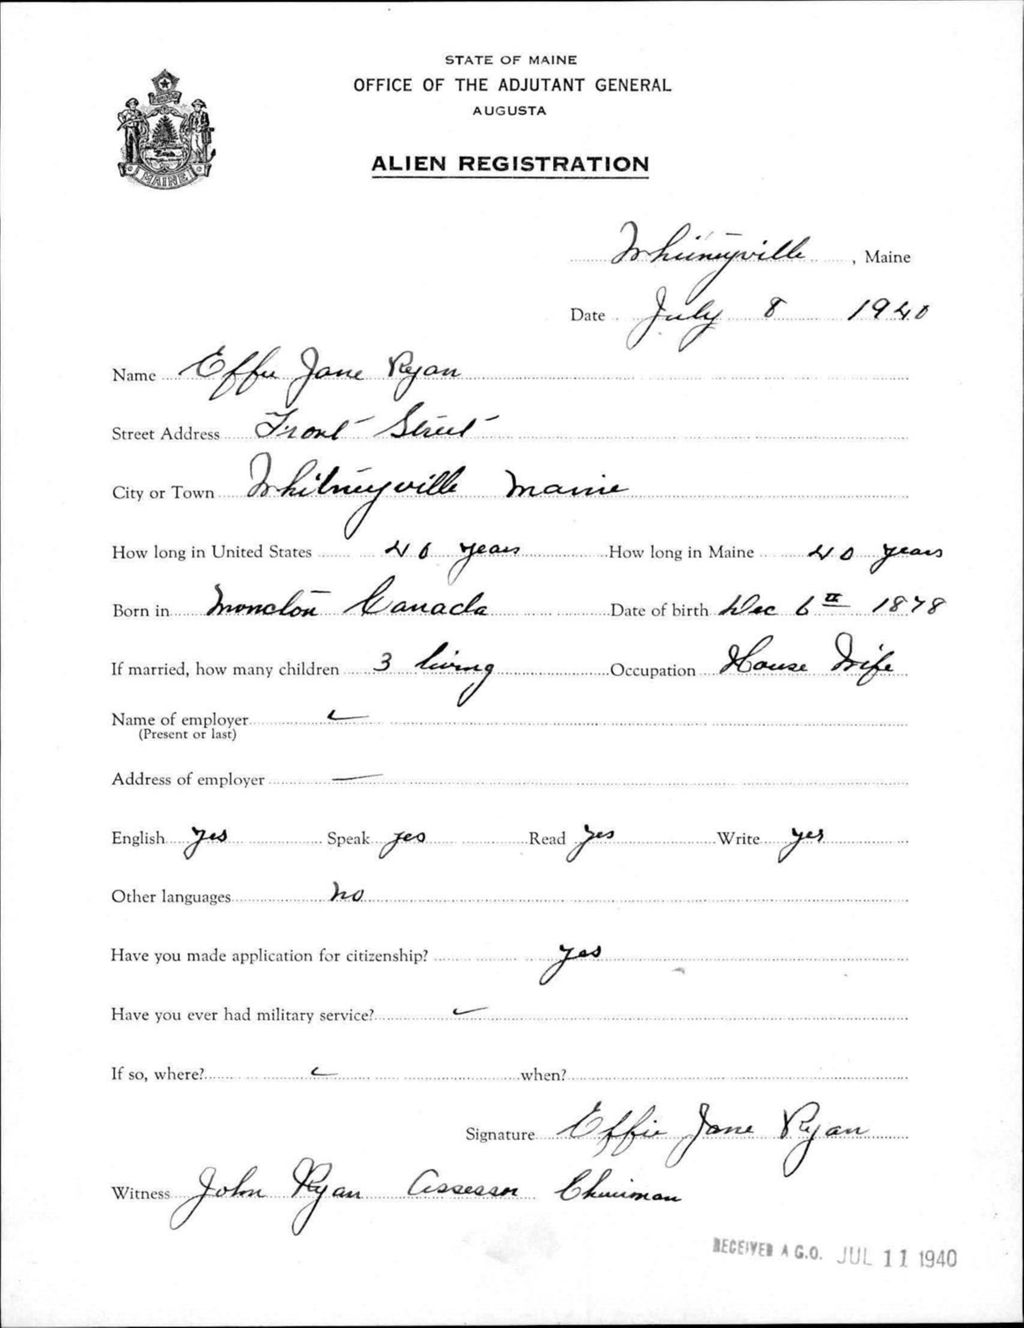 STATE OF MAINE
OFFICE OF THE ADJUTANT GENERAL
AUGUSTA
MAINE
ALIEN REGISTRATION
Whitneyville, Maine
Date July 8 1940
Name Effie Jane Ryan
Street Address Front Street
City or Town Whitneyville Maine
How long in United States 40 years How long in Maine 40 years
Born in Moncton Canada Date of birth Dec 6th 1878
If married, how many children 3 living Occupation House Wife
Name of employer —
(Present or last)
Address of employer —
English yes Speak yes Read yes Write yes
Other languages no
Have you made application for citizenship? yes
Have you ever had military service? —
If so, where? — when?
Signature Effie Jane Ryan
Witness John Ryan Assessor Chairman
RECEIVED A.G.O. JUL 11 1940